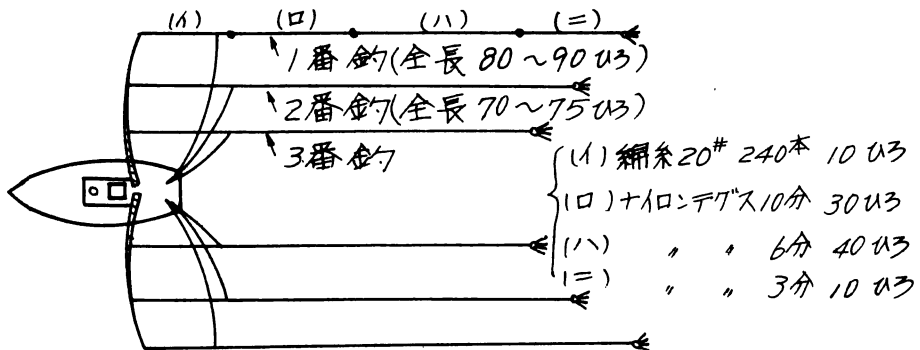 (イ) (ロ) (ハ) (ニ)
1番釣(全長 80～90ひろ)
2番釣(全長 70～75ひろ)
3番釣
(イ) 編糸20# 240本 10ひろ
(ロ) ナイロンテグス10分 30ひろ
(ハ) 〃 〃 6分 40ひろ
(ニ) 〃 〃 3分 10ひろ